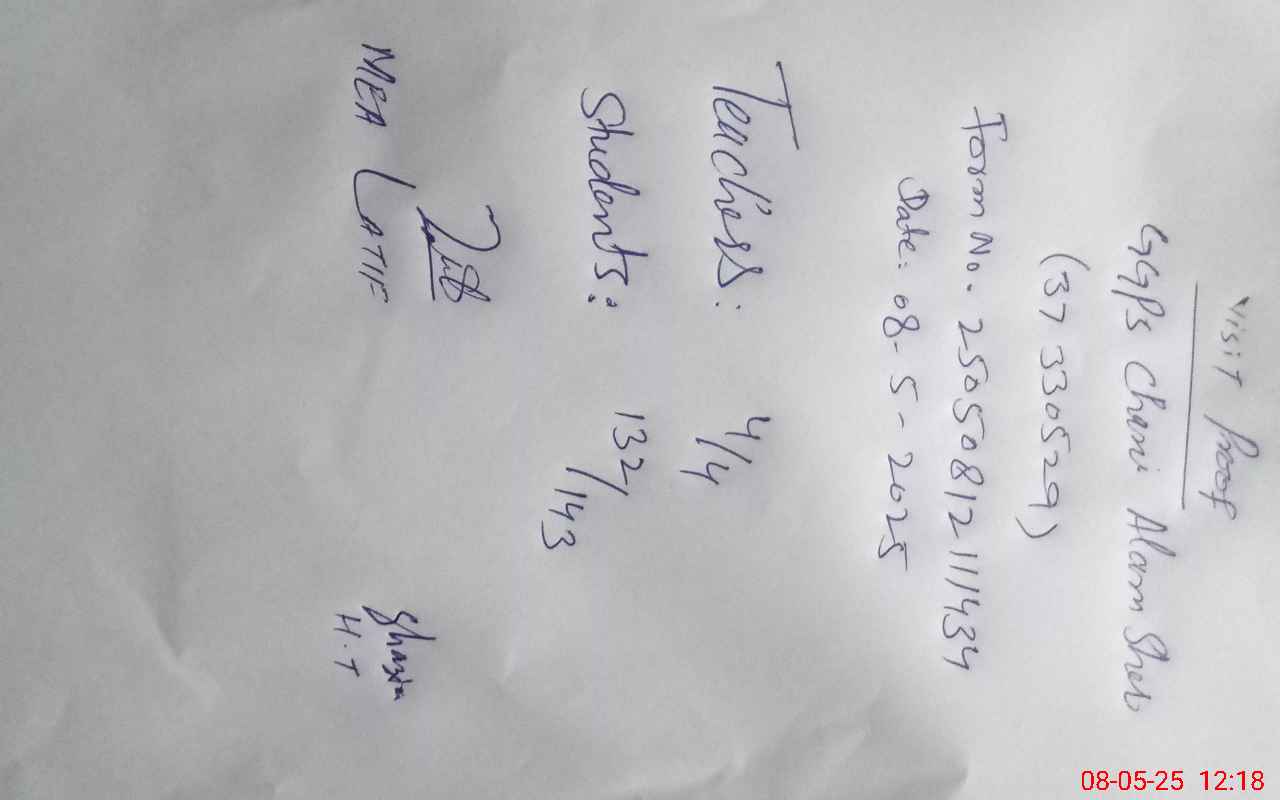 Visit Proof
GGPS Chani Alam Sher
(37330529)
Form No. 25050812111434
Date: 08-5-2025
Teachers: 4/4
Students: 132/143
MEA LATIF
Shazia
H.T
08-05-25 12:18